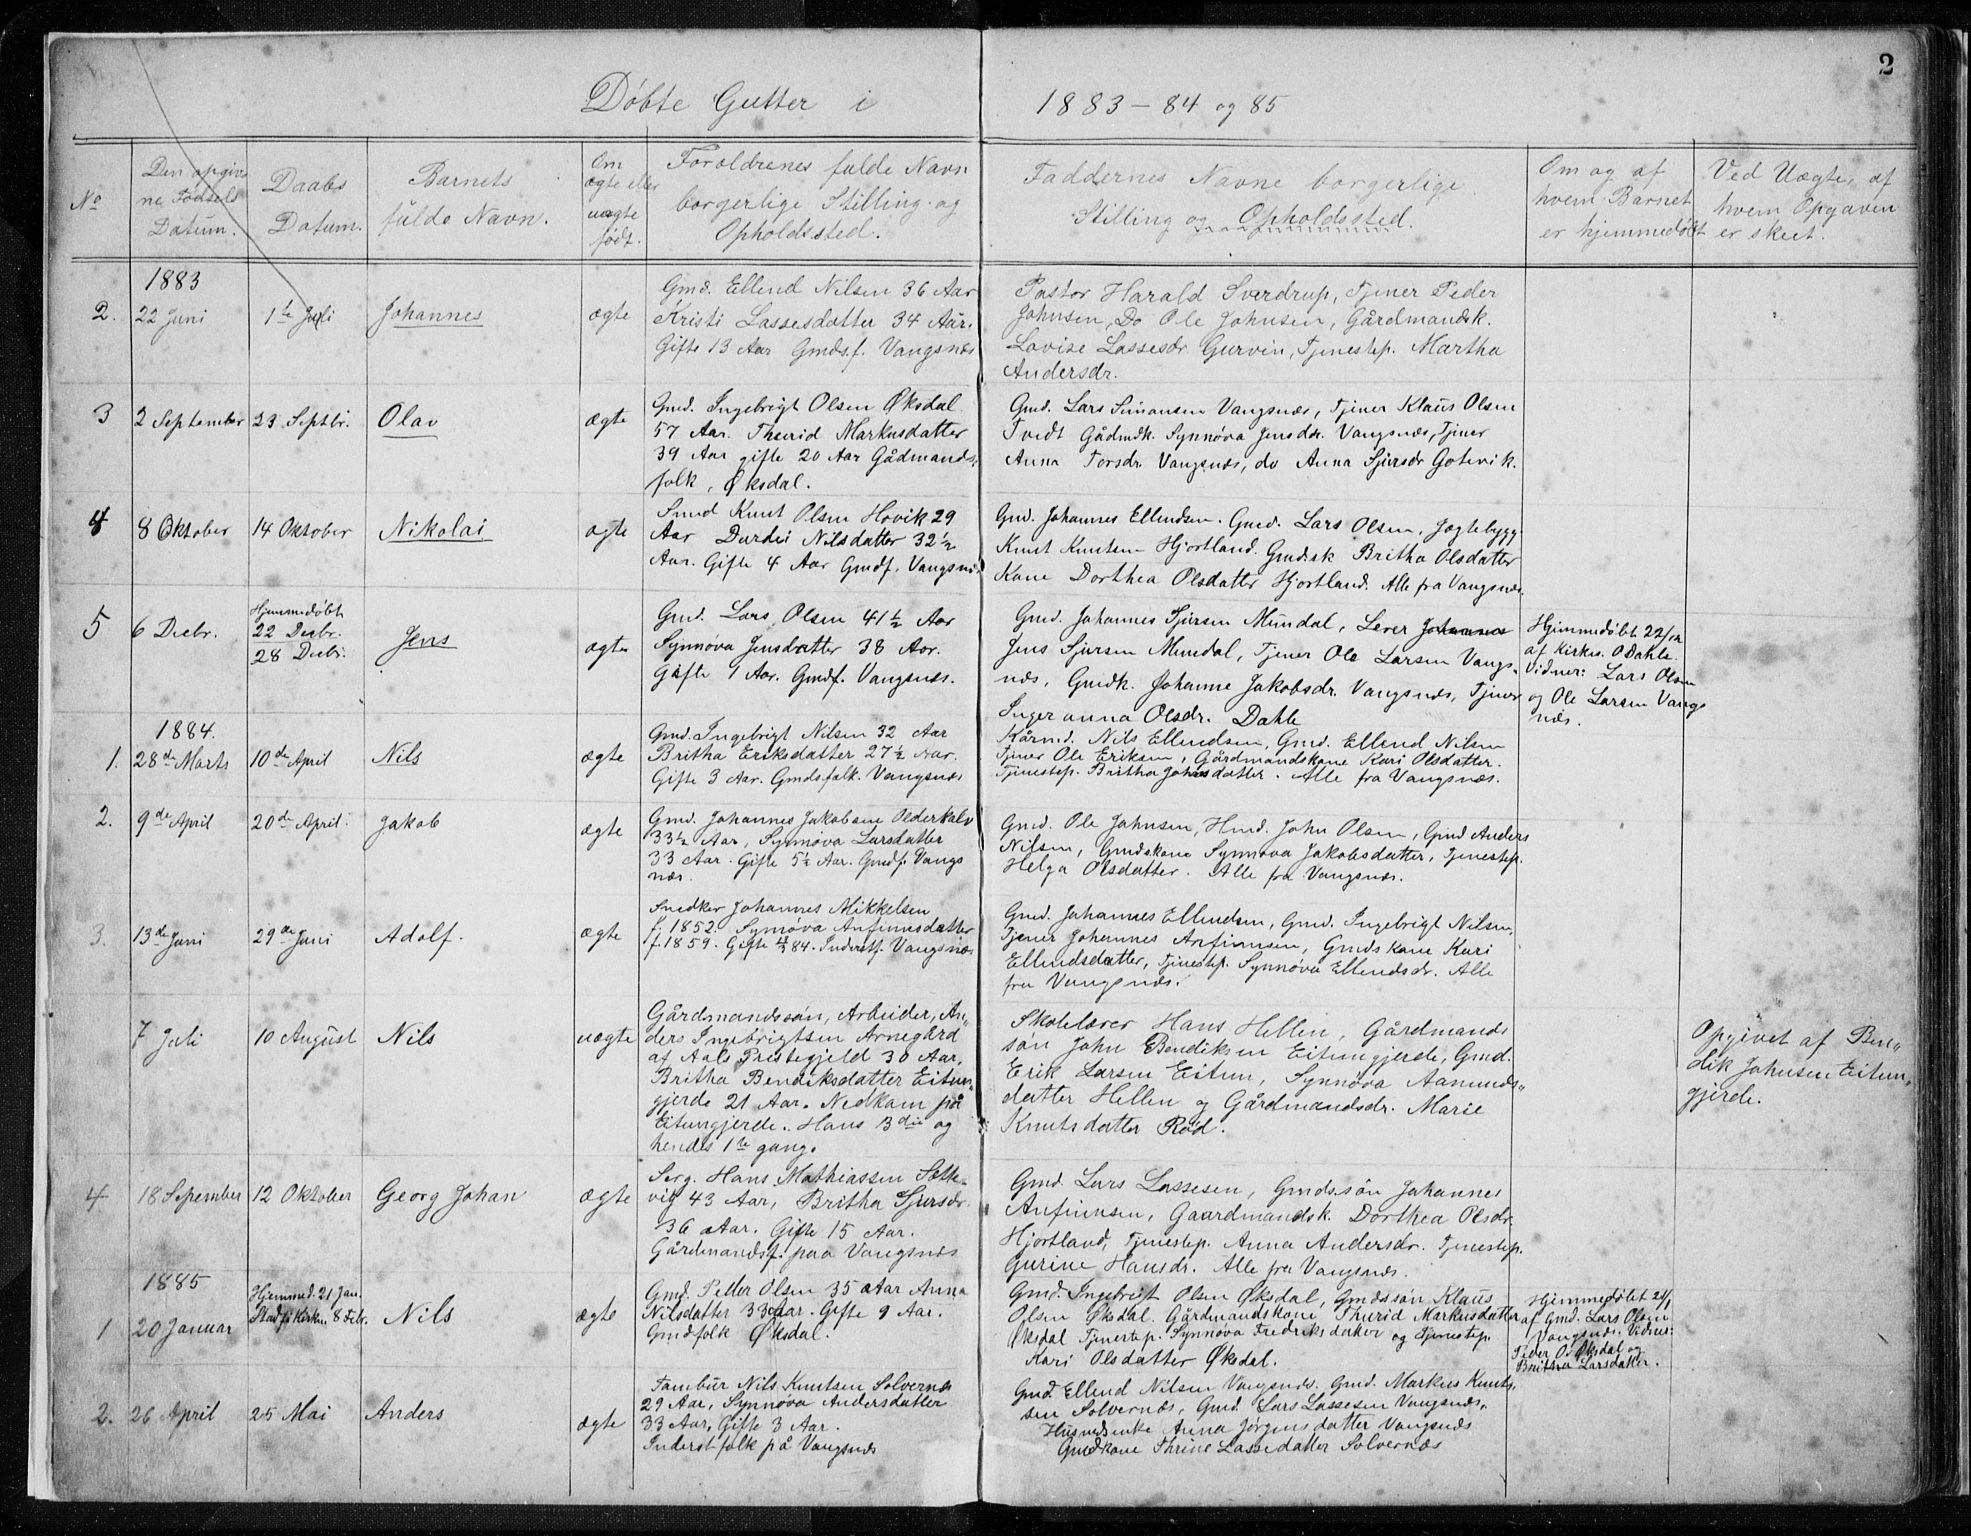 2
Døbte Gutter i 1883-84 og 85
No
Den opgivne Fødsels Datum.
Daabs Datum.
Barnets fulde Navn.
Om ægte eller uægte født.
Forældrenes fulde Navn borgerlige Stilling og Opholdssted.
Faddernes Navne borgerlige Stilling og Opholdssted.
Om og af hvem Barnet er hjemmedøbt
Ved Uægte, af hvem Opgaven er skeet.
1883
2. 22 Juni
1te Juli
Johannes
ægte
Gmd. Ellend Nilsen 36 Aar
Kristi Lassesdatter 34 Aar.
Gifte 13 Aar Gmdsf. Vangsnæs
Pastor Harald Sverdrup, Tjener Peder
Johnsen, Do Ole Johnsen, Gårdmandsk.
Lovise Lassesdr. Gurvin, Tjenestep. Martha
Andersdr.
3 2 September
23 Septbr.
Olav
ægte
Gmd. Ingebrigt Olsen Øksdal
57 Aar. Thurid Markusdatter
39 Aar gifte 20 Aar Gådmands
folk, Øksdal.
Gmd. Lars Simonsen Vangsnæs, Tjener Klaus Olsen
Tvedt Gådmdk. Synnøva Jensdr. Vangsnæs, Tjener
Anna Torsdr. Vangsnæs, do Anna Sjursdr Gotevik.
4 8 Oktober
14 Oktober
Nikolai
ægte
Smed Knut Olsen Hovik 29
Aar Durdei Nilsdatter 32½
Aar. Gifte 4 Aar Gmdf. Vangsnæs
Gmd. Johannes Ellendsen. Gmd. Lars Olsen, Jagtebygg.
Knut Knutsen Hjortland. Gmdsk Britha Olsdatter
Kone Dorthea Olsdatter Hjortland. Alle fra Vangsnæs.
5 6 Decbr.
Hjemmedøbt
22 Decbr.
28 Decbr.
Jens
ægte
Gmd. Lars Olsen 41½ Aar
Synnøva Jensdatter 38 Aar.
Gifte 1 Aar. Gmdf. Vangsnæs.
Gmd. Johannes Sjursen Mundal, Lærer Johannes
Jens Sjursen Mundal, Tjener Ole Larsen Vangs-
næs, Gmdk. Johanne Jakobsdr. Vangsnæs, Tjener
Inger anna Olsdr. Dahle
Hjemmedøbt 22/12
af Kirkes. O Dahle.
Vidner: Lars Olsen
og Ole Larsen Vangs
næs.
1884.
1. 28de Marts
10de April
Nils
ægte
Gmd. Ingebrigt Nilsen 32 Aar
Britha Eriksdatter 27½ Aar.
Gifte 3 Aar. Gmdsfolk. Vangsnæs
Kårmd. Nils Ellendsen, Gmd. Ellend Nilsen
Tjener Ole Eriksen, Gårdmandskone Kari Olsdatter.
Tjenestep. Britha Johnsdatter. Alle fra Vangsnæs.
2. 9de April
20de April.
Jakob
ægte
Gmd. Johannes Jakobsen Olderkalv
33½ Aar, Synnøva Larsdatter
33 Aar. Gifte 5½ Aar. Gmdf. Vangs
næs.
Gmd. Ole Johnsen, Hmd. John Olsen, Gmd Anders
Nilsen, Gmdskone Synnøva Jakobsdatter, Tjenestep.
Helga Olsdatter. Alle fra Vangsnæs.
3. 13de Juni
29de Juni
Adolf.
ægte
Snedker Johannes Mikkelsen
f. 1852. Synnøva Anfinnsdatter
f. 1859. Gifte 84. Inderstf. Vangsnæs
Gmd. Johannes Ellendsen, Gmd. Ingebrigt Nilsen,
Tjener Johannes Anfinnsen, Gmdskone Kari
Ellendsdatter, Tjenestep. Synnøva Ellendsdr. Alle
fra Vangsnæs.
7 Juli
10 August
Nils
uægte
Gårdmandssøn, Arbeider, An-
ders Ingebrigtsen Arnegård
af Aals Præstegjeld 30 Aar,
Britha Bendiksdatter Eitun-
gjerde 21 Aar. Nedkom på
Eitungjerde. Hans 3die og
hendes 1te gang.
Skolelærer Hans Hellen, Gårdmands
søn John Bendiksen Eitungjerde, Gmd.
Erik Larsen Eitun, Synnøva Aamunds-
datter Hellen og Gårdmandsdr. Marie
Knutsdatter Rød.
Opgivet af Ben-
dik Johnsen Eitun-
gjerde.
4 18 Sepember
12 Oktober
Georg Johan
ægte
Serg. Hans Mathiassen Sætte-
vig 43 Aar, Britha Sjursdr.
36 Aar. Gifte 15 Aar.
Gårdmandsf. paa Vangsnæs
Gmd. Lars Lassesen, Gmdssøn Johannes
Anfinnsen, Gaardmandsk. Dorthea Olsdr.
Hjortland, Tjenestep. Anna Andersdr. Tjenestep.
Gurine Hansdr. Alle fra Vangsnæs.
1885
1 20 Januar
Hjemmed. 21 Jan.
Stadf. i Kirken 8 Febr.
Nils
ægte
Gmd. Peder Olsen 35 Aar Anna
Nilsdatter 33 Aar. Gifte 9 Aar.
Gmdfolk Øksdal.
Gmd. Ingebrigt Olsen Øksdal, Gmdssøn Klaus
Olsen Øksdal. Gårdmandskone Thurid Markusdatter
Øksdal Tjenestep. Synnøva Fredriksdatter og Tjenestep.
Kari Olsdatter Øksdal.
Hjemmedøbt 21/1
af Gmd. Lars Olsen
Vangsnæs. Vidner:
Peder O. Øksdal og
Britha Larsdatter.
2. 26 April
25 Mai
Anders
ægte
Tambur Nils Knutsen Solvernæs
29 Aar, Synnøva Andersdatter
33 Aar, Gifte 3 Aar.
Inderstfolk på Vangsnæs
Gmd. Ellend Nilsen Vangsnæs. Gmd. Markus Knut-
sen Solvernæs, Gmd. Lars Lassesen Vangsnæs,
Husmdsenke Anna Jørgensdatter Vangsnæs
Gmdkone Thrine Lassedatter Solvernæs